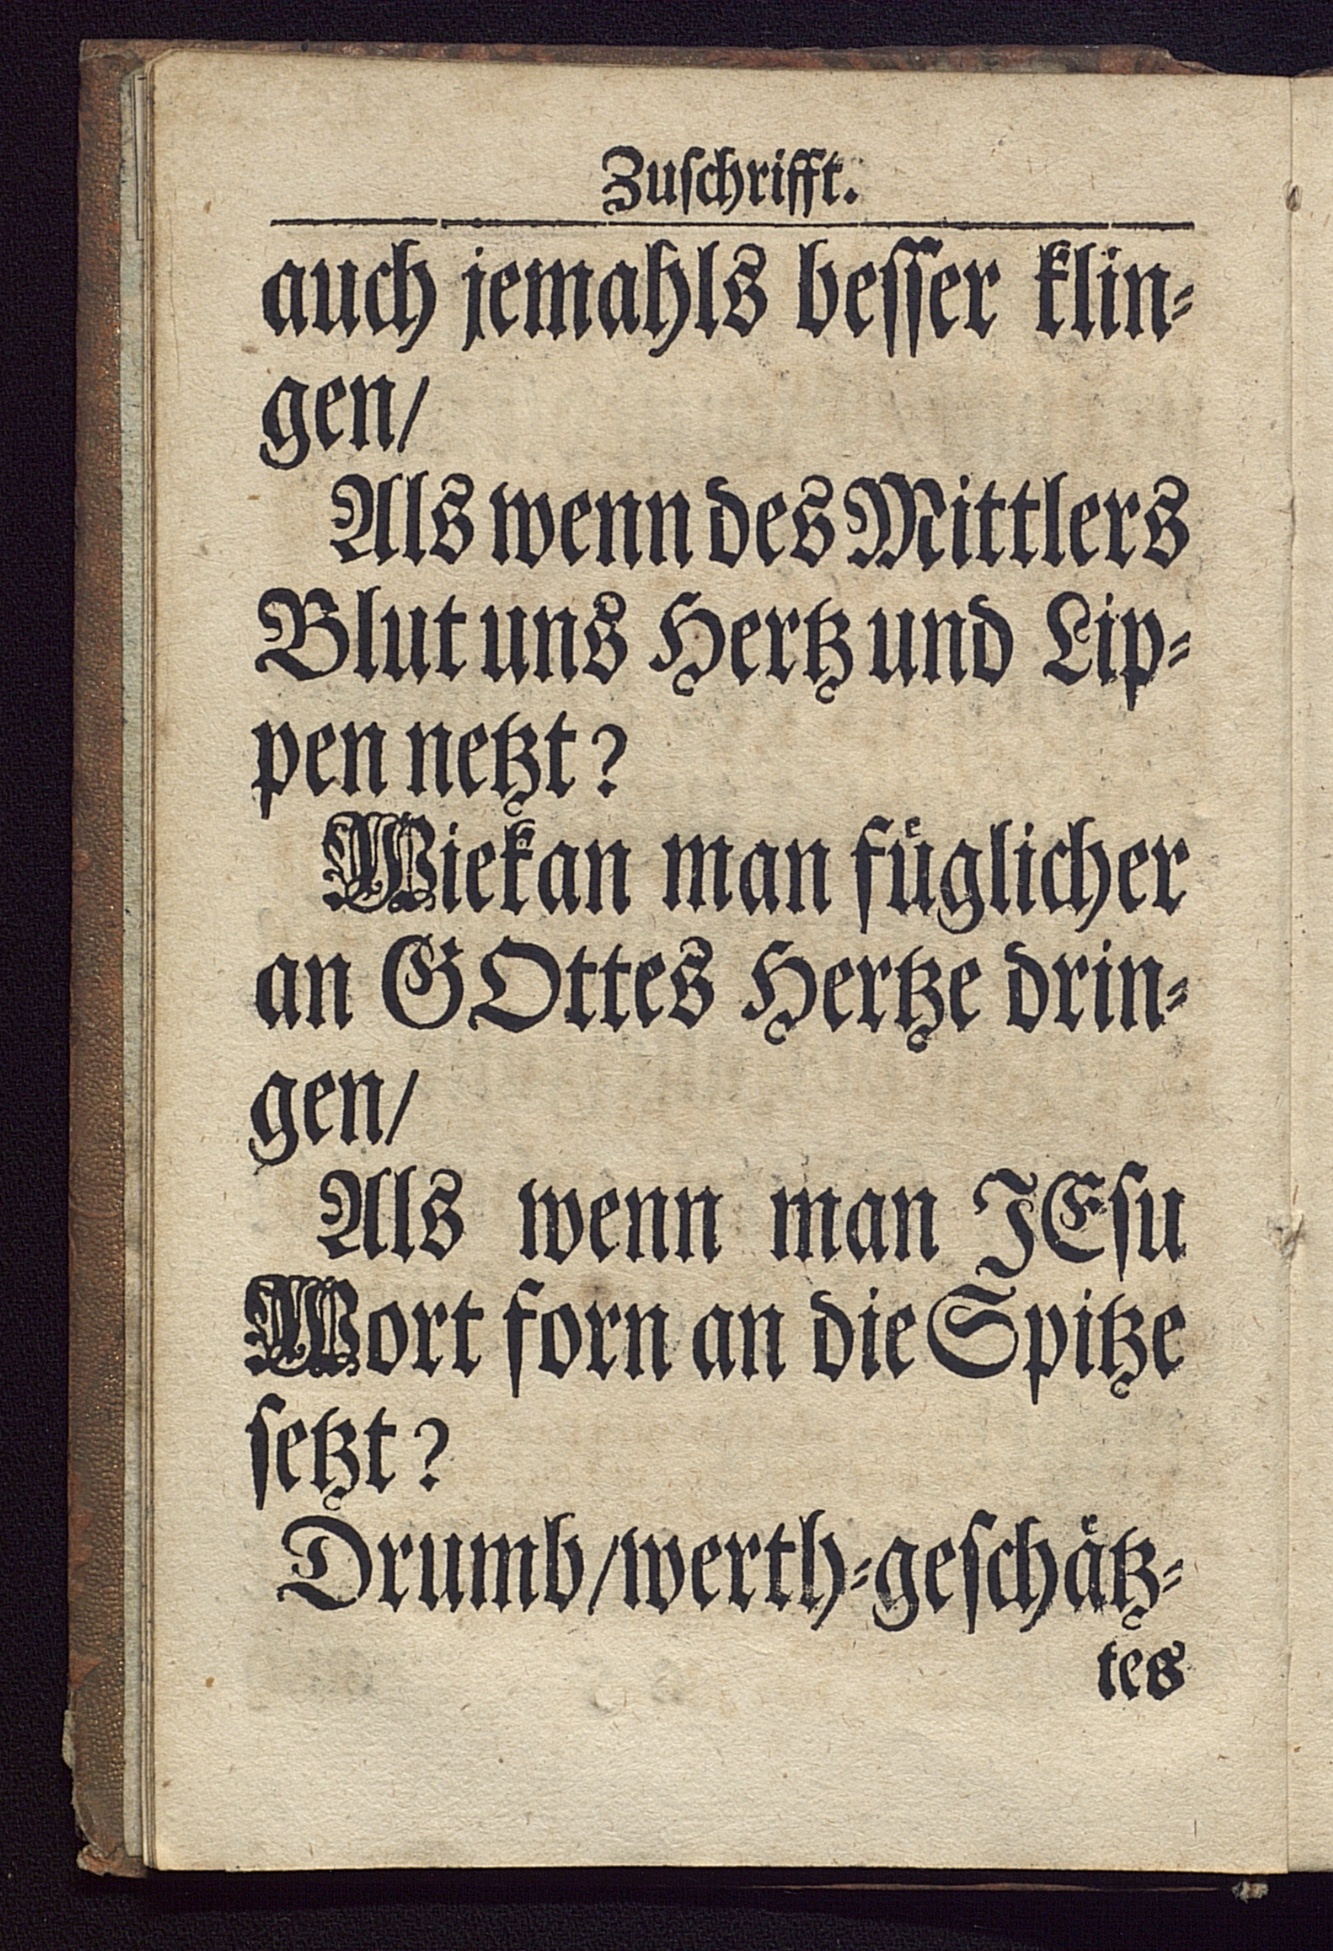 Zuſchrifft.
auch jemahls beſſer klin⸗
gen/
Als wenn des Mittlers
Blut uns Hertz und Lip⸗
pen netzt?
Wie kan man fuͤglicher
an GOttes Hertze drin⸗
gen/
Als wenn man JEſu
Wort forn an die Spitze
ſetzt?
Drumb/ werth⸗geſchaͤtz⸗
tes